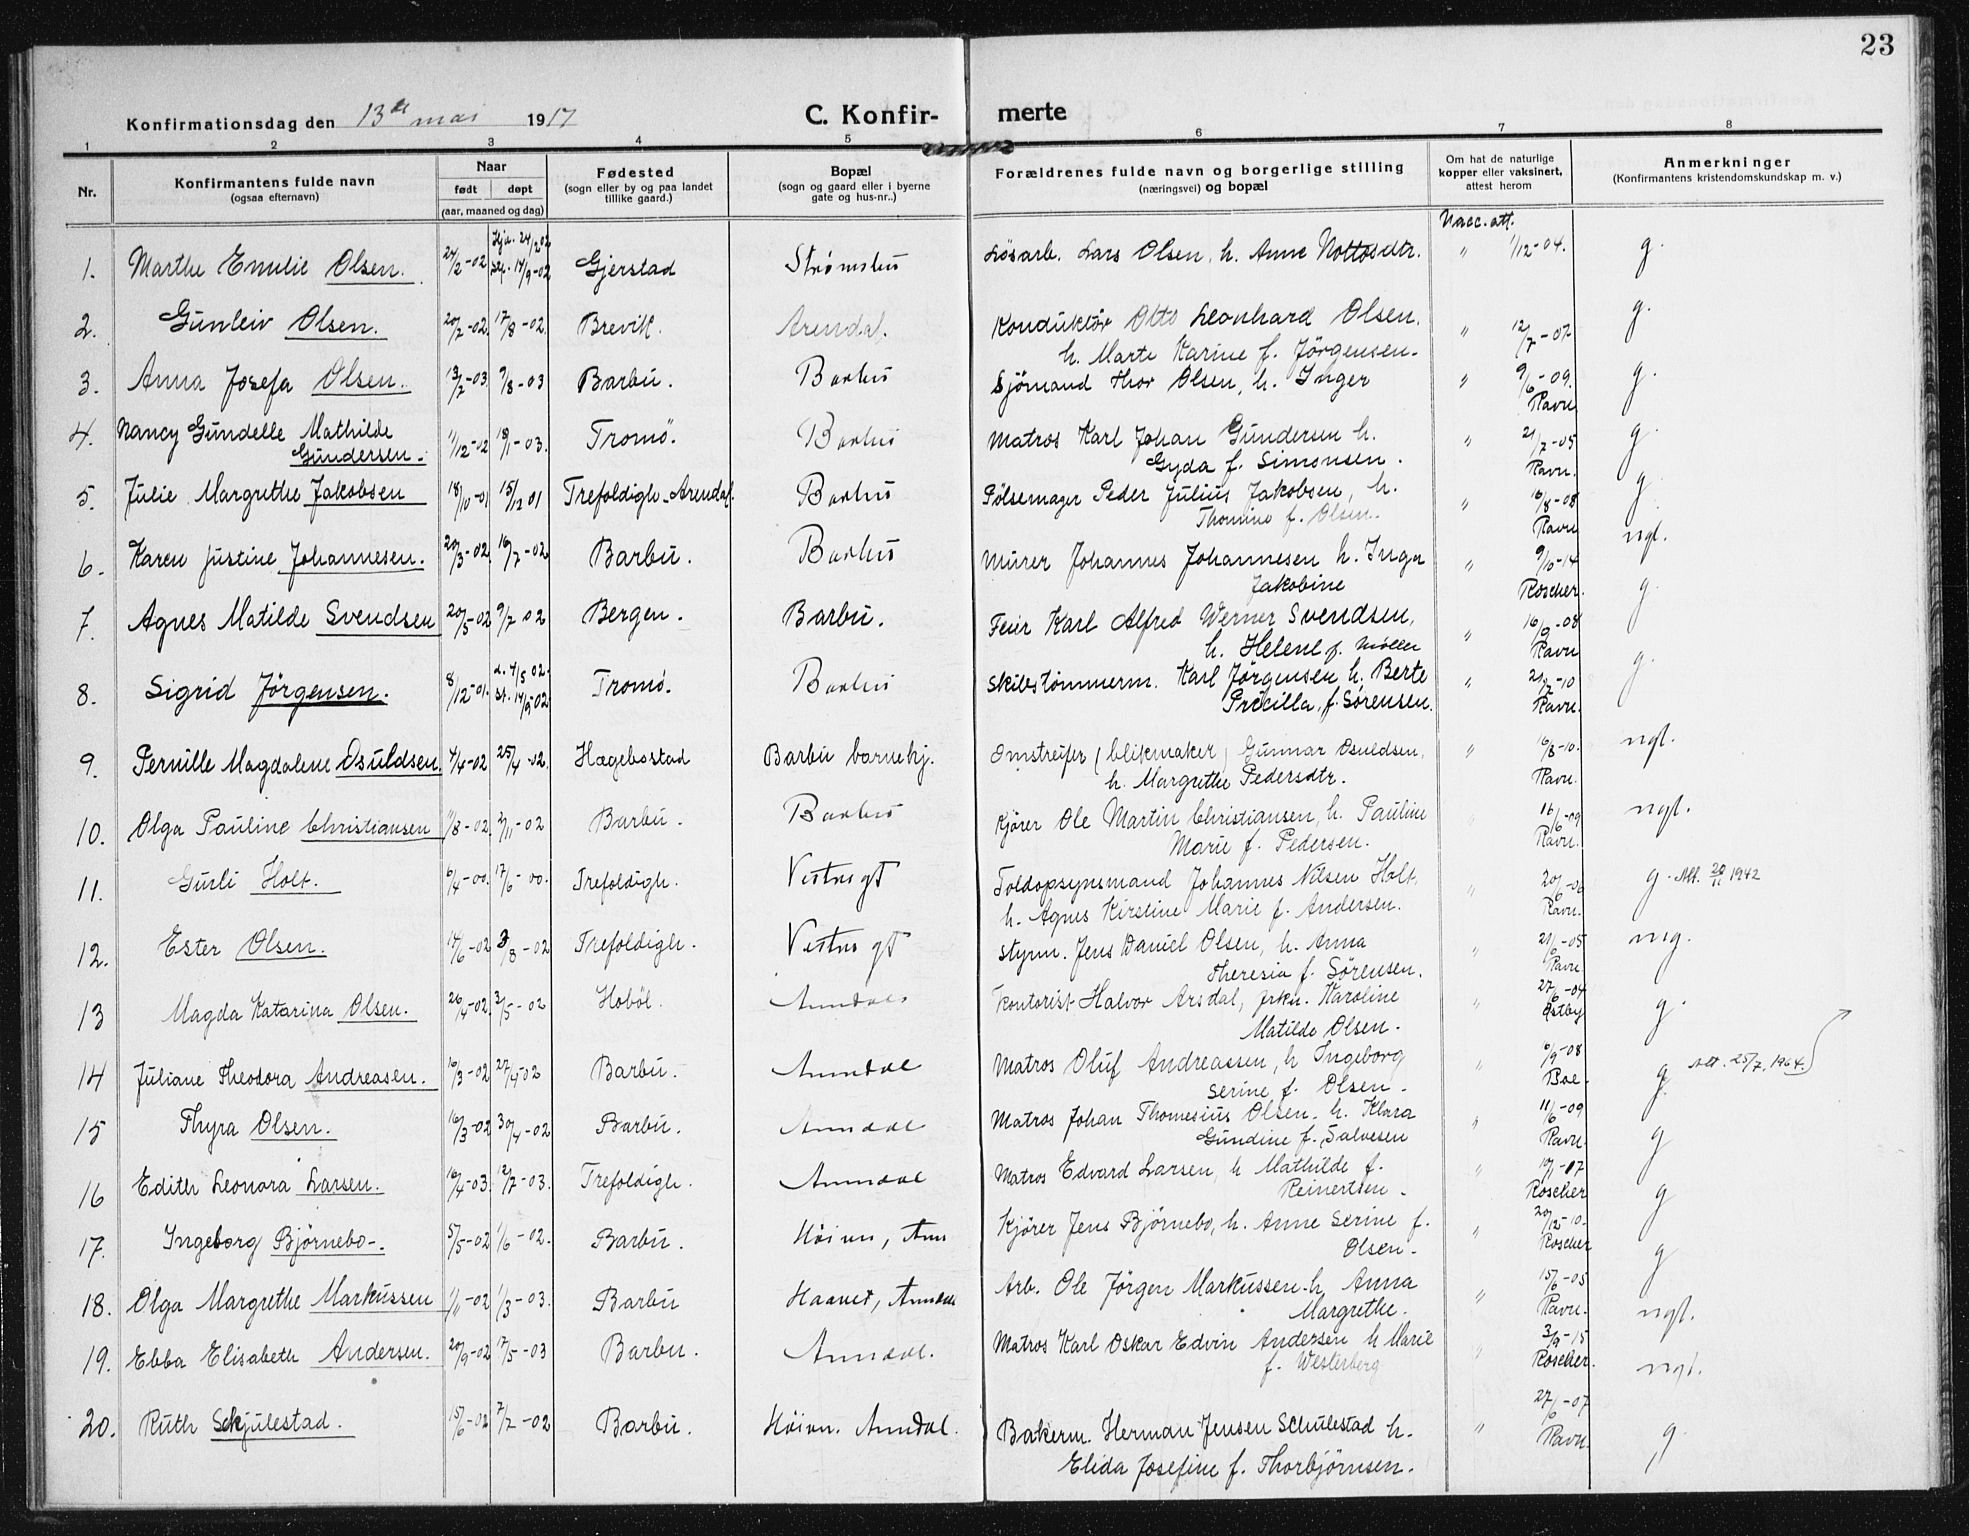 23
Konfirmationsdag den 13de mai 1917 C. Konfir- merte
1 2 3 4 5 6 7 8
Nr. Konfirmantens fulde navn (ogsaa efternavn) Naar født døpt (aar, maaned og dag) Fødested (sogn eller by og paa landet tillike gaard.) Bopæl (sogn og gaard eller i byerne gate og hus-nr..) Forældrenes fulde navn og borgerlige stilling (næringsvei) og bopæl Om hat de naturlige kopper eller vaksinert, attest herom Anmerkninger (Konfirmantens kristendomskundskap m. v.)
Vacc. att.
1. Marthe Emilie Olsen. 24/2-02 Hjd. 24/2 02 st. 14/9-02 Gjerstad Strømsbu Løsarb. Lars Olsen, h. Anne Nottosdtr. " 1/12-04. g.
2. Gunleiv Olsen. 20/7-02 17/8-02 Brevik. Arendal. Konduktør Otto Leonhard Olsen. " 12/7-07 g.
h. Marte Karine f. Jörgensen.
3. Anna Josefa Olsen. 13/7-03 9/8-03 Barbu. Barbu Sjömand Thor Olsen, h. Inger " 9/6-09. Ravn g.
4. Nancy Gundelle Mathilde Gundersen. 11/12-02 18/1-03. Tromö. Barbu Matros Karl Johan Gundersen h. " 21/7-05 Ravn. g.
Gyda f. Simonsen.
5. Julie Margrethe Jakobsen 18/10-01 15/12 01 Trefoldigh. Arendal. Barbu Pölsemager Peder Julius Jakobsen, h. " 16/8-08 Ravn g.
Thomine f. Olsen.
6. Karen Justine Johannesen. 20/3-02 16/7-02 Barbu. Barbu Murer Johannes Johannesen h. Inga " 9/10-14 Roscher. ngt.
Jakobine
7. Agnes Matilde Svendsen 20/5-02 9/7 02 Bergen. Barbu. Feier Karl Alfred Werner Svendsen, " 16/9-08 Ravn g.
h. Helene f. Møller
8. Sigrid Jörgensen. 8/12-01. d. 4/5 02. st. 14/9-02 Tromø. Barbu Skibstömmerm. Karl Jörgensen h. Berte " 21/7-10 Ravn. g.
Pricilla, f. Sörensen.
9. Pernille Magdalene Osuldsen. 4/4-02 25/4-02. Hægebostad Barbu barnehj. Omstreifer (blikmaker) Gunnar Osuldsen, " 16/8-10. Ravn. ngt.
h. Margrethe Pedersdtr.
10. Olga Pauline Christiansen 11/8-02 2/11-02 Barbu. Barbu Kjører Ole Martin Christiansen, h. Pauline " 16/6-09 Ravn. ngt.
Marie f. Pedersen.
11. Gurli Holt. 6/4-00. 17/6-00. Trefoldigh. Vestregt Toldopsynsmand Johannes Nilsen Holt. " 20/6-06 Ravn. g. Att. 20/11 1942
h. Agnes Kirstine Marie f. Andersen.
12. Ester Olsen. 14/6-02 3/8-02 Trefoldigh. Vestregt Styrm. Jens Daniel Olsen, h. Anna " 21/6-05 Ravn. mg.
Theresia f. Sörensen.
13 Magda Katarina Olsen. 26/4-02. 3/5-02 Hobøl. Arendal Kontorist Halvor Arsdal, frkn. Karoline " 27/6-04 Østby g.
Matilde Olsen.
14 Juliane Theodora Andreasen. 16/3-02 27/4-02 Barbu. Arendal Matros Oluf Andreassen, h Ingeborg " 6/9-08 Boe. g. Att. 25/7, 1964.
Serine f. Olsen.
15 Thyra Olsen. 16/3-02 30/4-02 Barbu. Arendal Matros Johan Thomesius Olsen. h. Klara " 11/6-09 Ravn. g
Gundine f. Salvesen
16 Edith Leonora Larsen. 16/4-03. 12/7-03. Trefoldigh. Arendal Matros Edvard Larsen, h Mathilde f. " Roscher g
Reinertsen.
17. Ingeborg Bjørnebo. 5/5-02 1/6-02. Barbu. Høien, Aren Kjører Jens Bjørnebo, h. Anne Serine f. " 20/12-10. Roscher g
Olsen.
18. Olga Margrethe Markussen 1/11-02 1/3-03. Barbu Haavet, Arendal Arb. Ole Jörgen Markussen. h. Anna " 15/6-05 Ravn. ngt.
Margrethe.
19. Ebba Elisabeth Andersen. 20/9-02 17/5-03 Barbu. Arendal. Matros Karl Oskar Edvin Andersen h Marie " 3/9-15 Roscher. ngt.
f. Westerberg
20. Ruth Schjulestad. 15/6-02 7/7-02 Barbu. Høien. Arendal. Bakerm. Herman Jensen Schulestad h. " 27/6-07 Ravn. g.
Elida Josefine f. Thorbjørnsen.